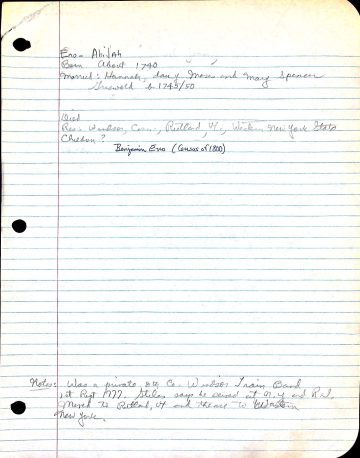 Eno - Abijah
Born About 1740
Married: Hannah, dau of Moses and Mary Spencer
Griswold b 1745/50
Died
Res: Windsor, Conn., Rutland, Vt., Western New York State
Children?
Benjamin Eno (Census of 1800)
Notes: Was a private 8th Co. Windsor Train Band
1st Regt 1777. Stiles says he served at N.Y. and R.I.
Moved to Rutland, Vt and thence to Western
New York.